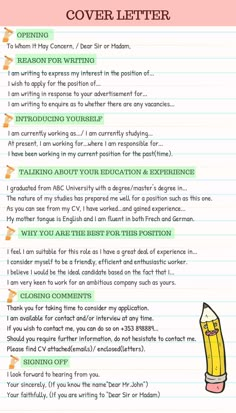 COVER LETTER
OPENING
To Whom It May Concern, / Dear Sir or Madam,
REASON FOR WRITING
I am writing to express my interest in the position of...
I wish to apply for the position of...
I am writing in response to your advertisement for...
I am writing to enquire as to whether there are any vacancies...
INTRODUCING YOURSELF
I am currently working as.../ I am currently studying...
At present, I am working for...where I am responsible for...
I have been working in my current position for the past(time).
TALKING ABOUT YOUR EDUCATION & EXPERIENCE
I graduated from ABC University with a degree/master's degree in...
The nature of my studies has prepared me well for a position such as this one.
As you can see from my CV, I have worked...and gained experience...
My mother tongue is English and I am fluent in both Frech and German.
WHY YOU ARE THE BEST FOR THIS POSITION
I feel I am suitable for this role as I have a great deal of experience in...
I consider myself to be a friendly, efficient and enthusiastic worker.
I believe I would be the ideal candidate based on the fact that i...
I am very keen to work for an ambitious company such as yours.
CLOSING COMMENTS
Thank you for taking time to consider my application.
I am available for contact and/or interview at any time.
If you wish to contact me, you can do so on +353 898889...
Should you require further information, do not hesistate to contact me.
Please find CV attached(emails)/ enclosed(letters).
SIGNING OFF
I look forward to hearing from you.
Your sincerely, (If you know the name"Dear Mr John")
Your faithfully, (If you are writing to "Dear Sir or Madam)